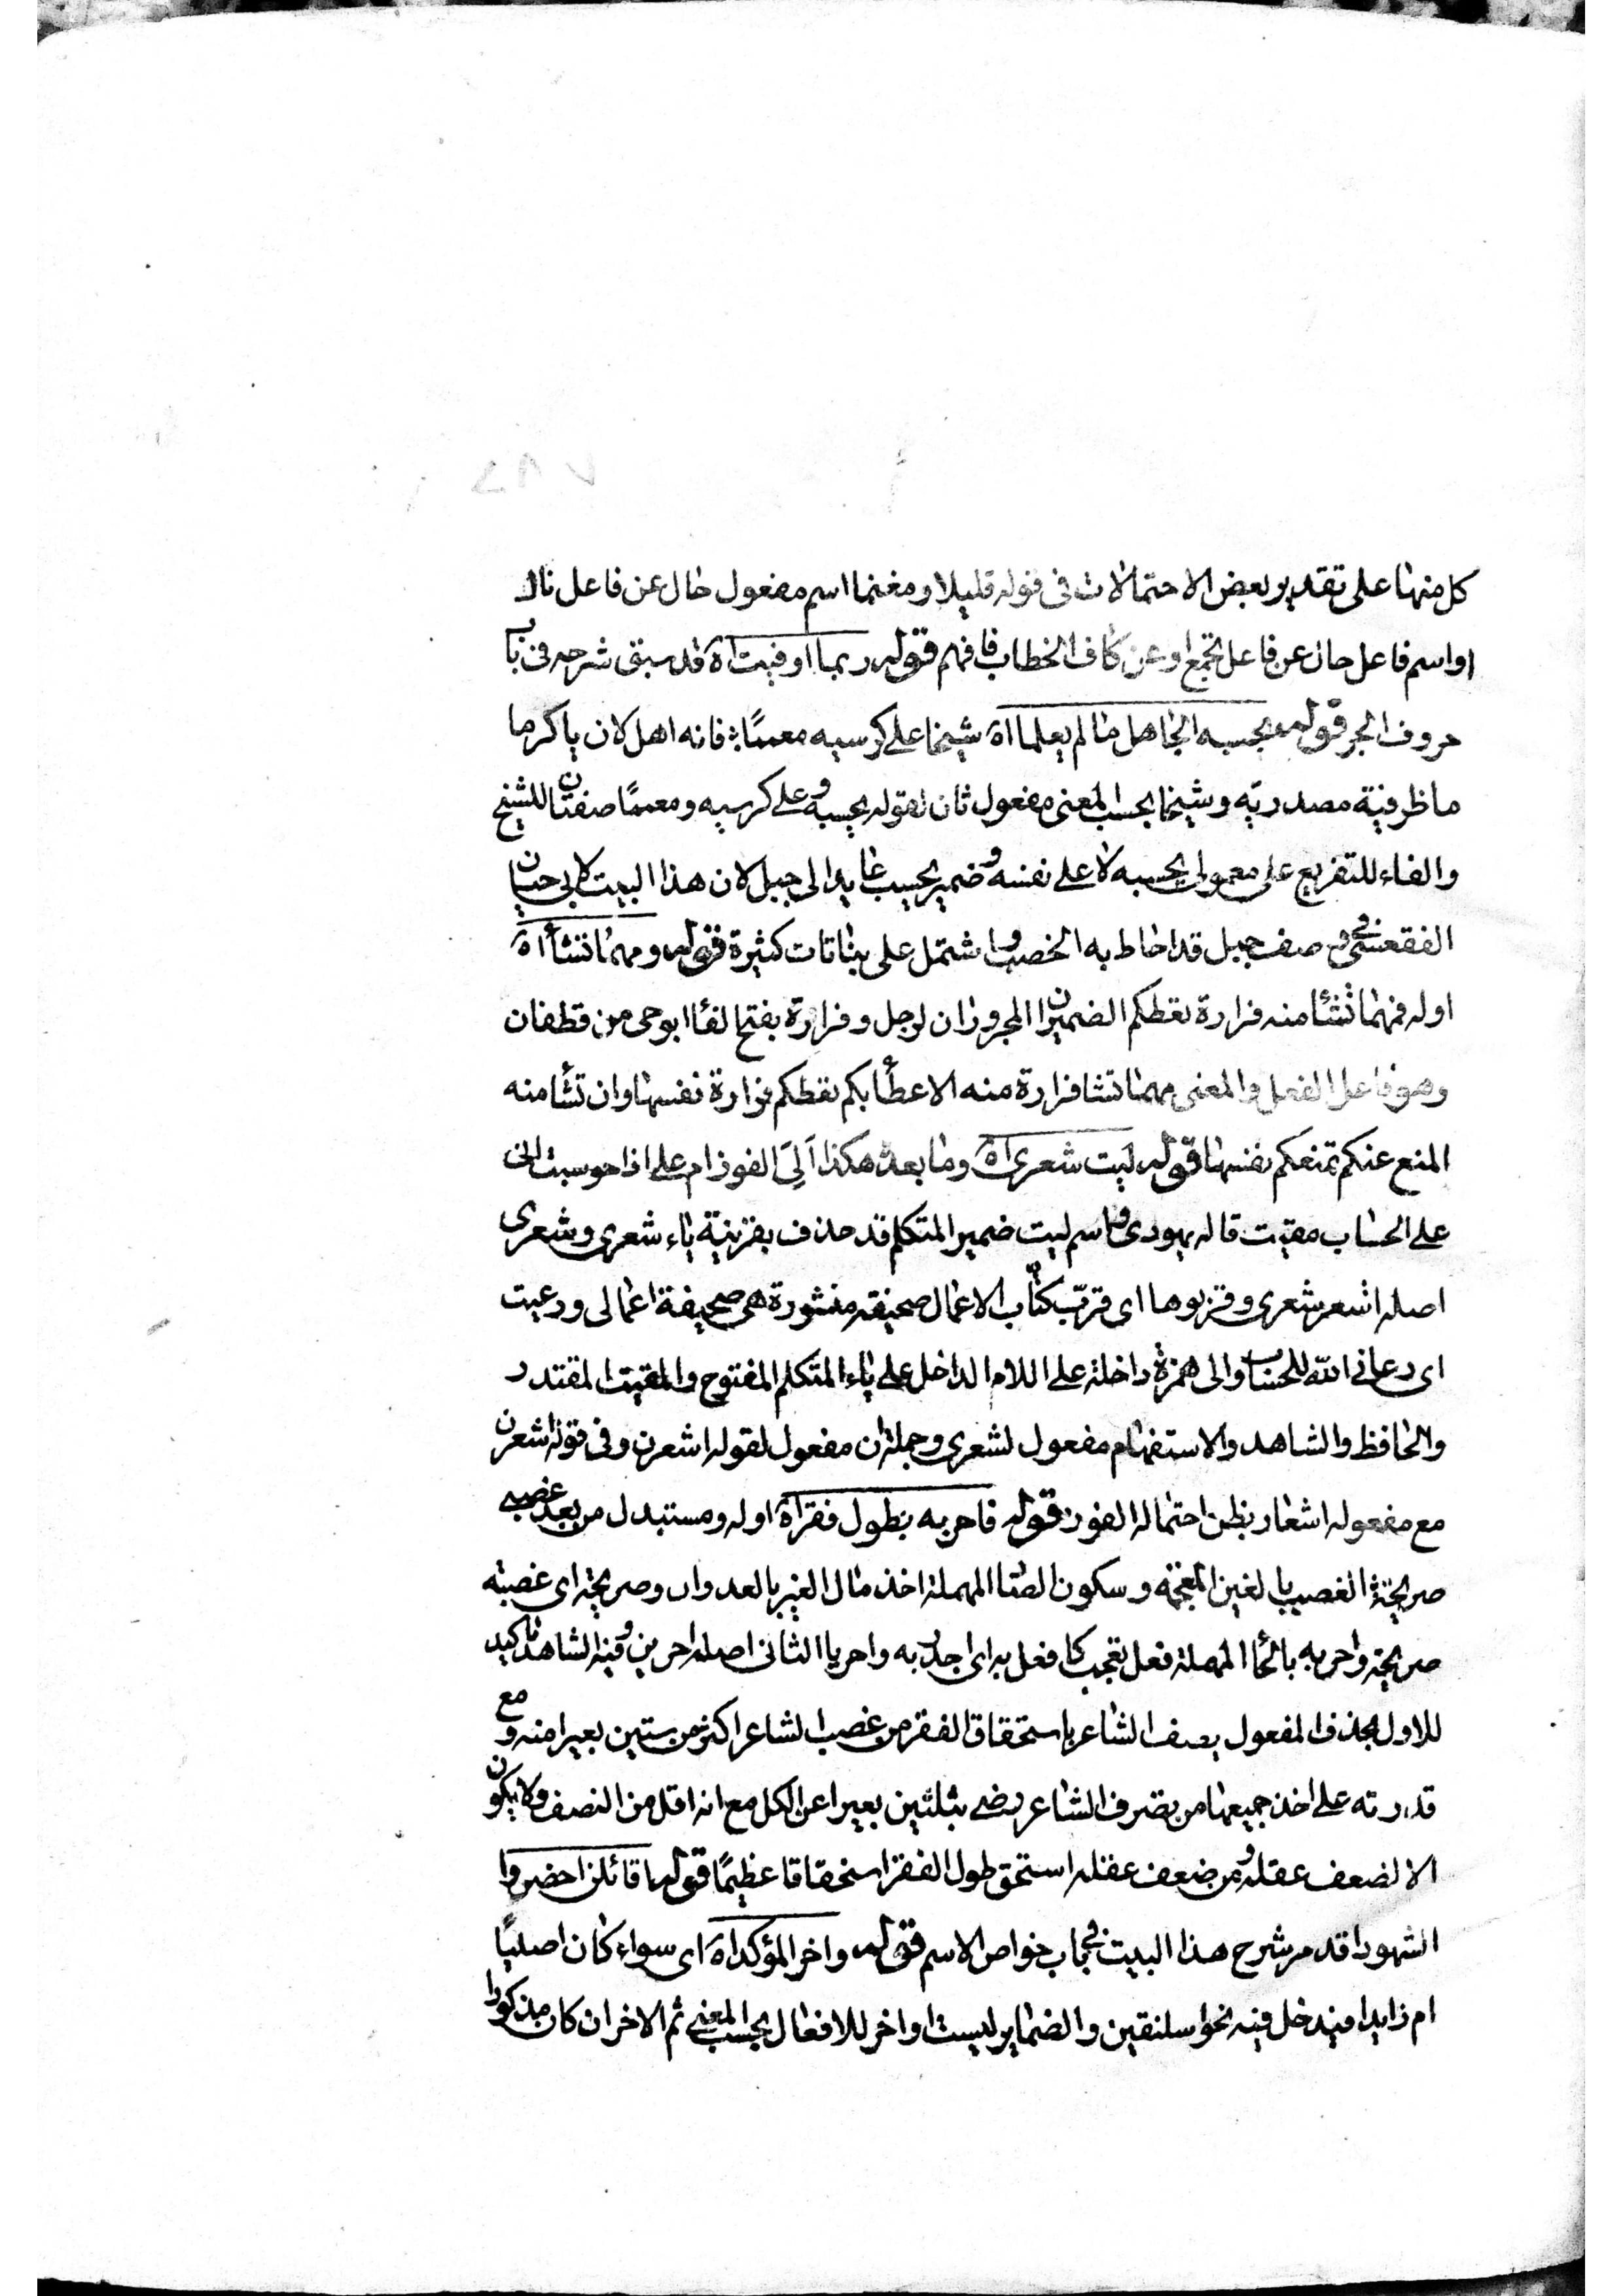 كل منهنا على تقدير بعض الاحتمالات فى قوله قليلا ومغنما اسم مفعول حال عن فاعل نال
او اسم فاعل حال عن فاعل تجمع او عن كاف الخطاب فافهم قوله ربما اوفيت اه قد سبق شرحه فى باب
حروف الجر قوله يحسبه الجاهل ما لم يعلما اه شيخا على كرسيه معمما فانه اهل لان ياكرما
ما ظرفية مصدرية وشيخا بحسب المعنى مفعول ثان لقوله يحسبه وعلى كرسيه ومعمما صفتان للشيخ
والفاء للتفريع على معمولى يحسبه لا على نفسه وضمير يحسب عايد الى جبل لان هذا البيت لابى حيان
الفقعسى فى صف جبل قد احاط به الخصب واشتمل على بناتات كثيرة قوله ومهما تشأ اه
اوله فمهما تشأ منه فزارة تعطكم الضميران المجروران لرجل وفزارة بفتح الفا ابوحى من قطفان
وهو فاعل الفعل والمعنى مهما تشا فزارة منه الاعطأ بكم تعطكم فزارة نفسها وان تشأ منه
المنع عنكم تمنعكم نفسها قوله ليت شعرى اه وما بعده هكذا اَلِىَ الفوز ام على اذا حوسبت انى
على الحساب مقيت قاله يهودى واسم ليت ضمير المتكلم قد حذف بقرينة ياء شعرى وشعرى
اصله اشعر شعرى وقربوها اى قرّب كتّاب الاعمال صحيفة منشورة هى صحيفة اعمالى ودعيت
اى دعانى الله للحساب والى همزة داخلة على اللام الداخل على ياء المتكلم المفتوح والمقيت المقتدر
والحافظ والشاهد والاستفهام مفعول لشعرى وجملة ان مفعول لقوله اشعرن وفى قوله اشعرن
مع مفعوله اشعار بظن احتماله الفوز قوله فاحر به بطول فقر اه اوله ومستبدل من بعد غضبى
صريحة الغصب بالغين المعجمة وسكون الصا المهملة اخذ مال الغير بالعدوان وصريحة اى غصبته
صريحة واحر به بالحا المهملة فعل تعجب كافعل به اى اجدر به واحريا الثانى اصله احرين وفيه الشاهد تاكيد
للاول بحذف المفعول يصف الشاعر باستحقاق الفقر من غصب الشاعر اكثر من ستين بعيرا منه ومع
قدرته على اخذ جميعها من تصرف الشاعر رضى بثلثين بعيرا عن الكل مع انه اقل من النصف ولا يكون
الا لضعف عقله ومن ضعف عقله استحق طول الفقر استحقاقا عظيمًا قوله اقائلن احضروا
الشهودا قد مر شرح هذا البيت فى باب خواص الاسم قوله واخر المؤكد اه اى سواء كان اصليًا
ام زايدا فيدخل فيه نحو اسلنقين والضماير ليست اواخر للافعال بحسب المعنى ثم الاخر ان كان مذكورا